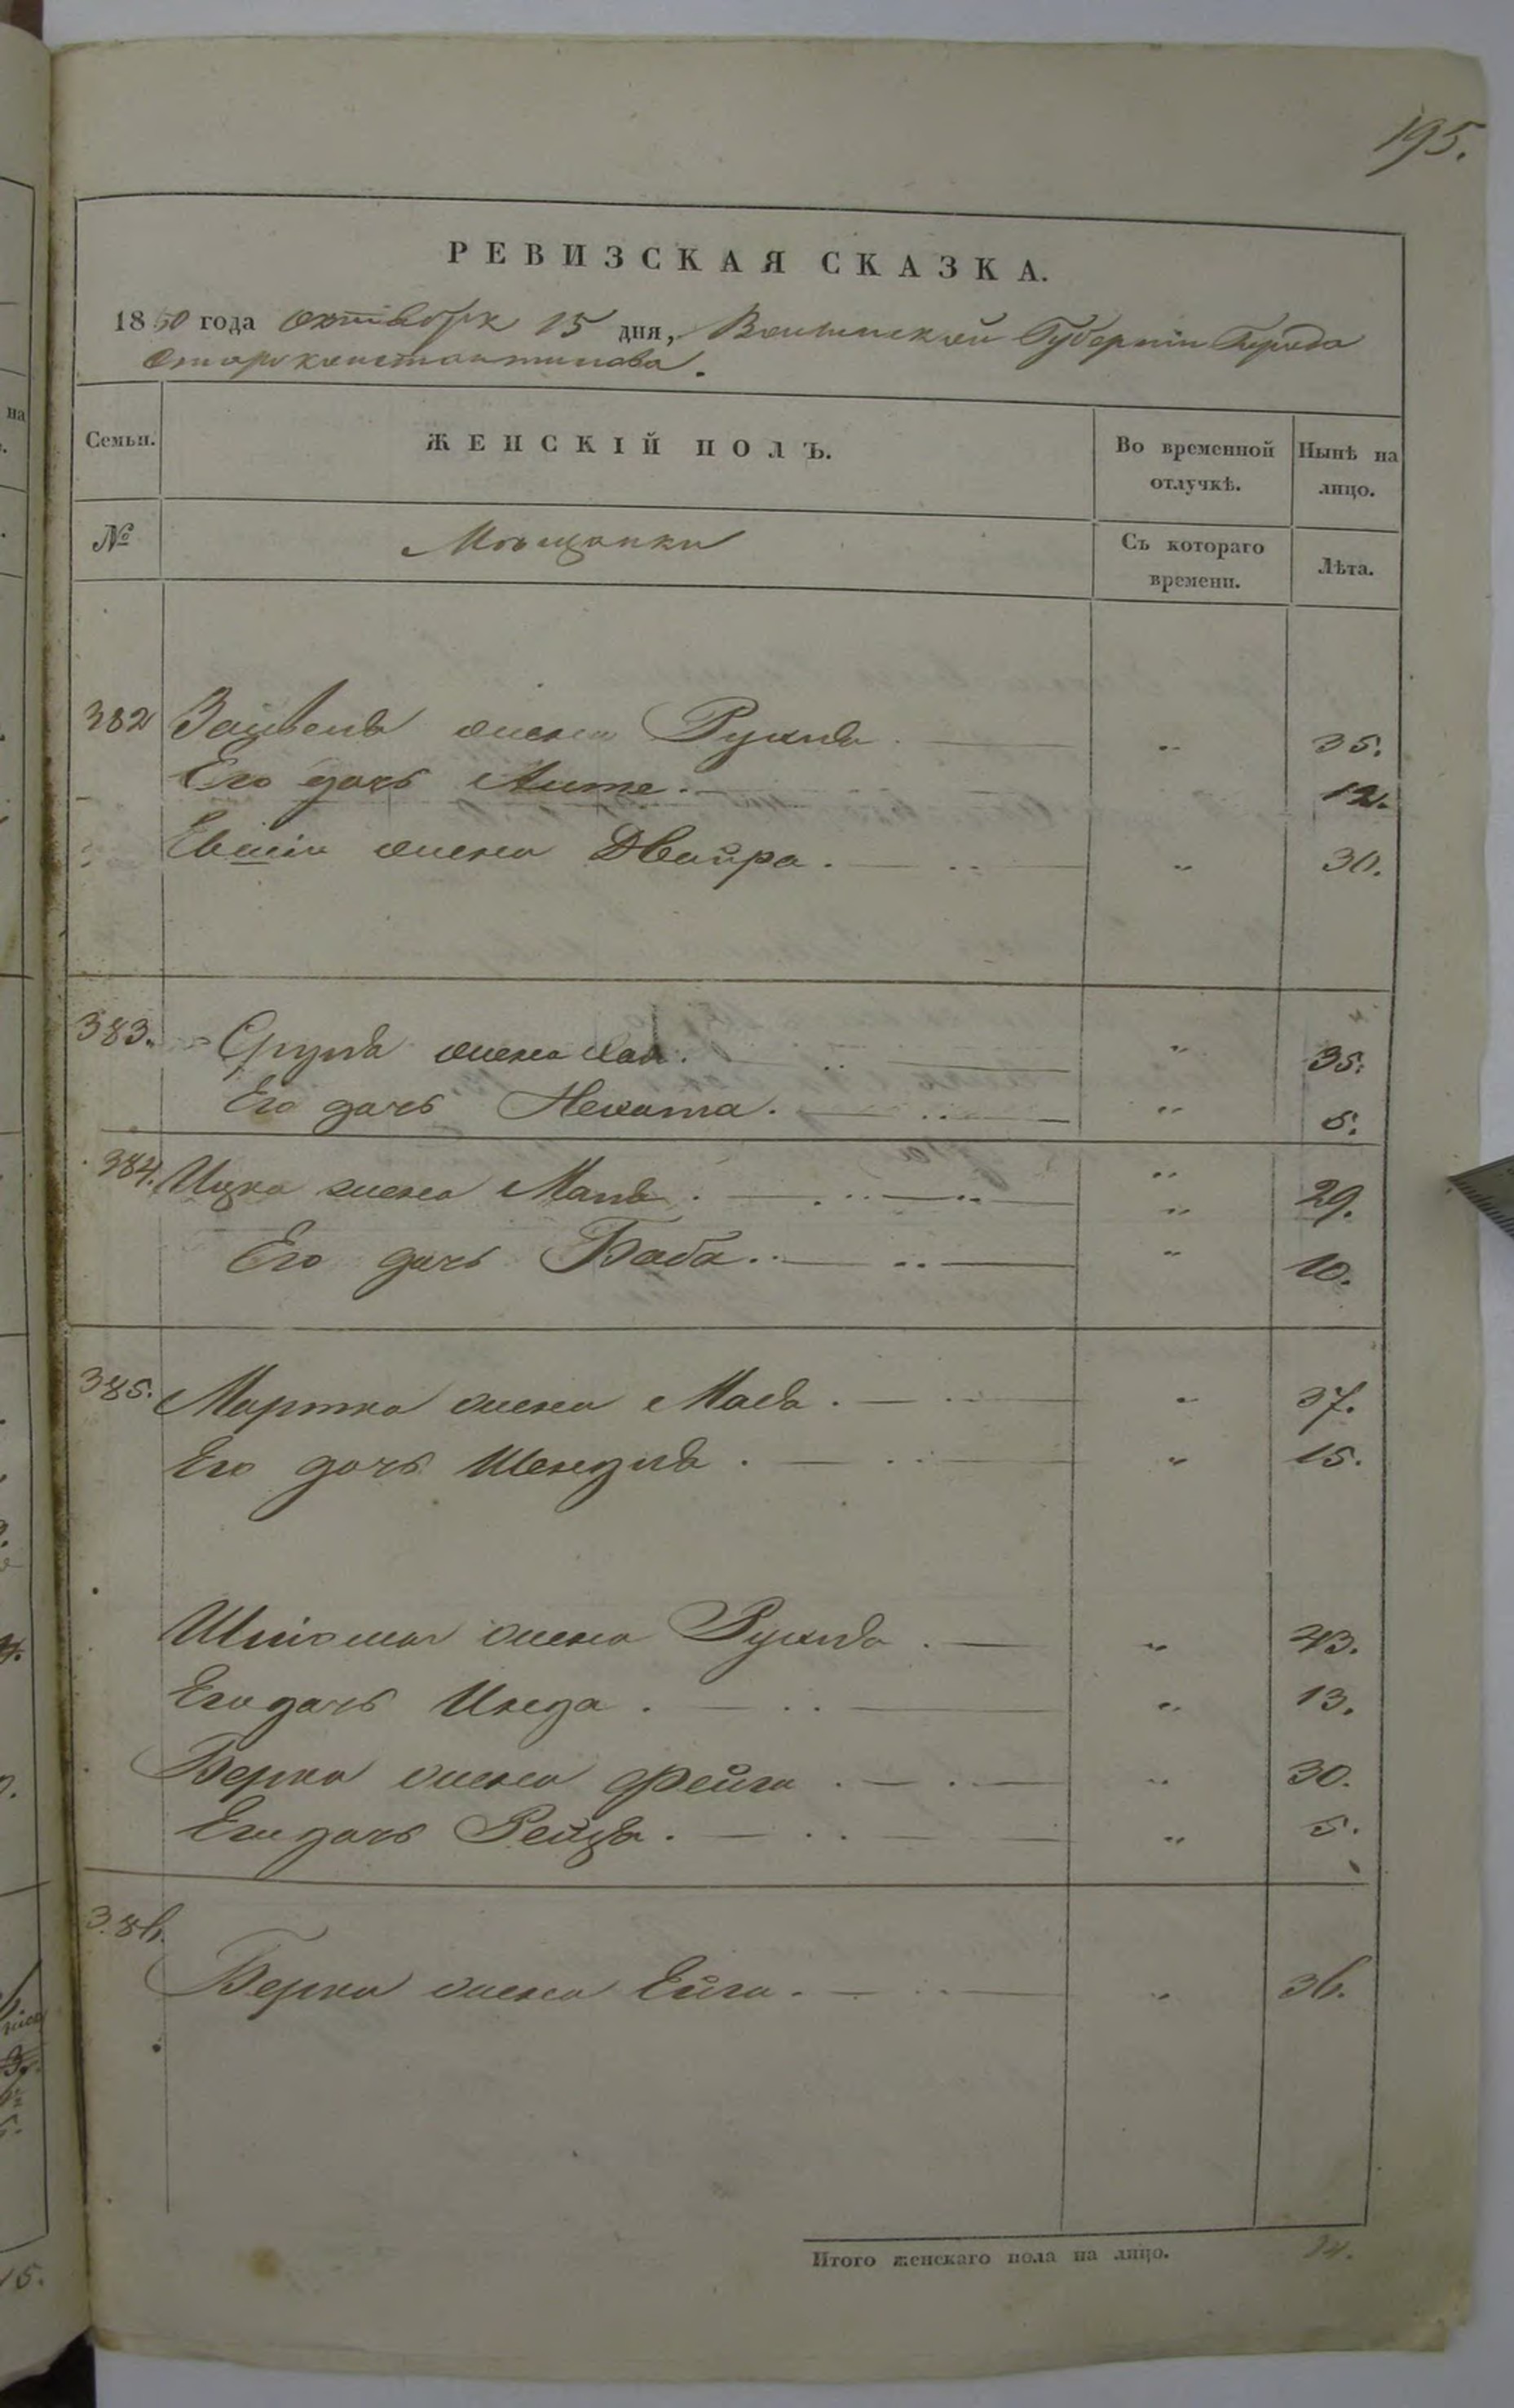 195.
РЕВИЗСКАЯ СКАЗКА.
1850 года октября 15 дня, Волынской Губернии Города
Староконстантинова.
Семьи. ЖЕНСКІЙ ПОЛЪ. Во временной отлучкѣ. Нынѣ на лицо.
№ Мѣщанки Съ котораго времени. Лѣта.
382 жена Рухля. — „ 35.
Его дочь — 12.
жена Двойра. — „ — „ 30.
383. Сруля жена Хая. „ — „ 35.
Его дочь Нехама. — „ — „ 5.
384. Ицка жена Маля. — „ — „ 29.
Его дочь Баба. — „ — „ 10.
385. жена Мася. — „ — „ 37.
Его дочь Шендля. — „ — „ 15.
Шліома жена Рухля. — „ 43.
Его дочь Инда. — „ — „ 13.
Берка жена Фейга. — „ — „ 30.
Его дочь Рейзя. — „ — „ 5.
386.
Берка жена Ейга. — „ — „ 36.
Итого женскаго пола на лицо. 14.